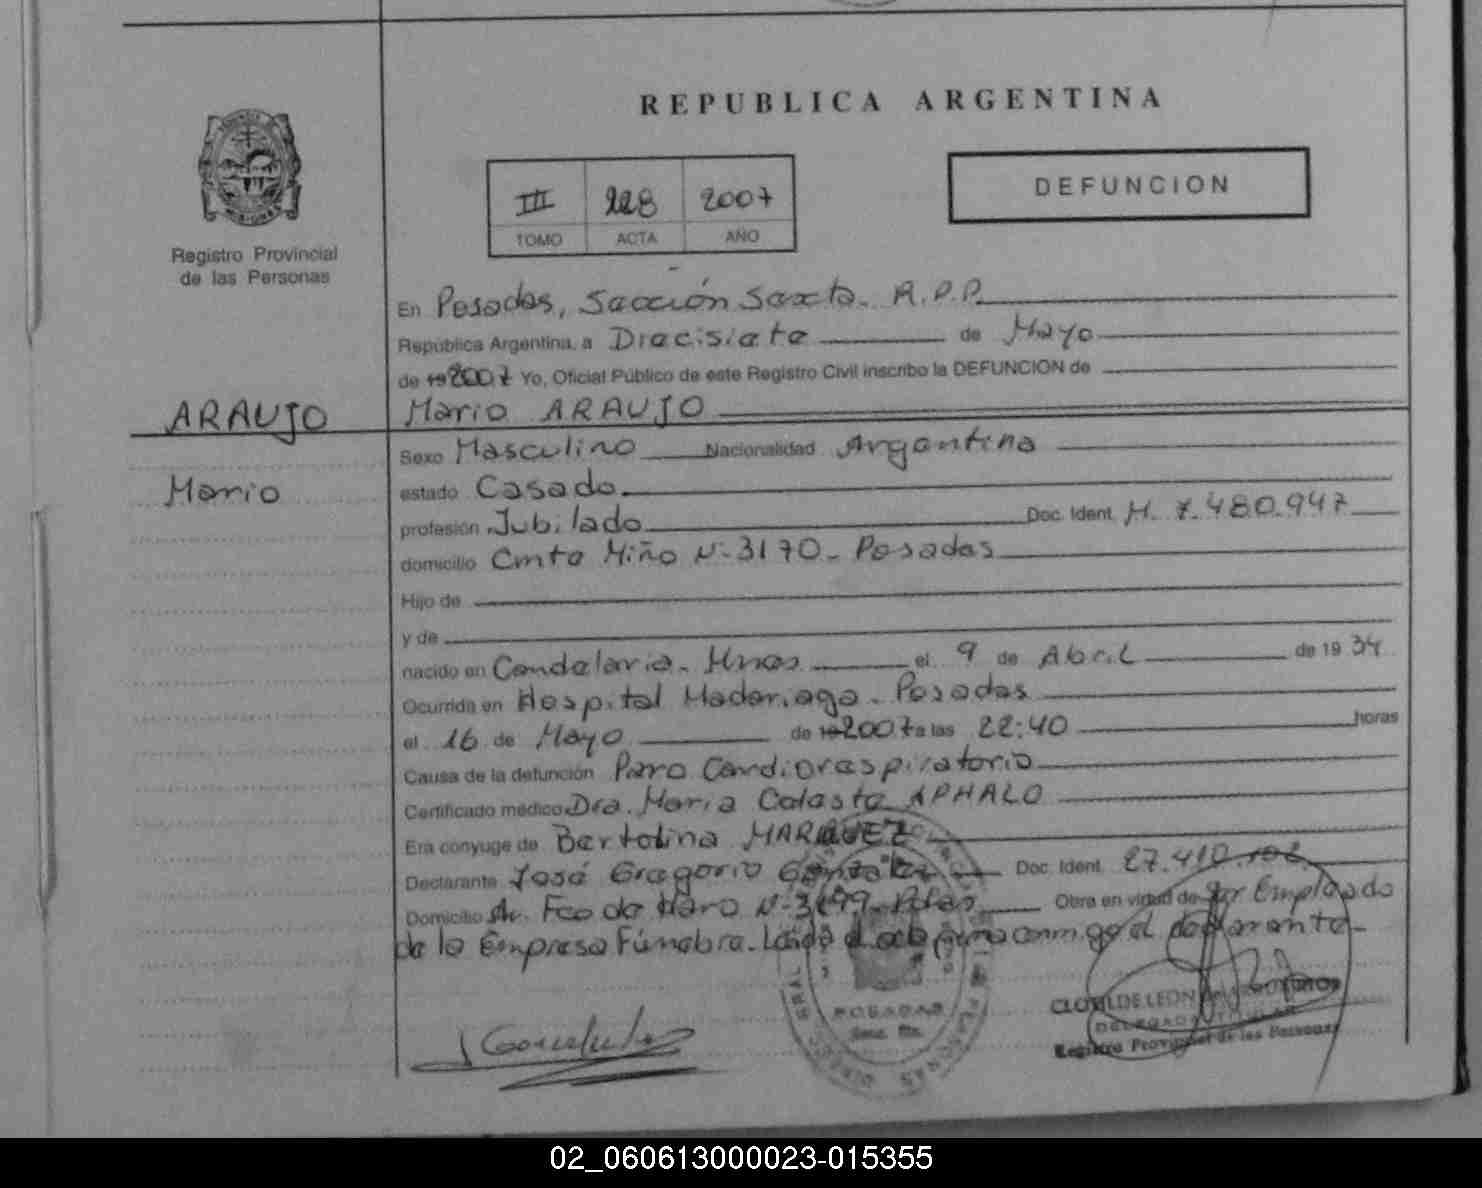 REPUBLICA ARGENTINA
DEFUNCION
III 228 2007
TOMO ACTA AÑO
Registro Provincial
de las Personas
En Posadas, Sección Sexta. R.P.P.
República Argentina, a Diecisiete de Mayo
de 19 2007 Yo, Oficial Público de este Registro Civil inscribo la DEFUNCION de
ARAUJO
Mario ARAUJO
Sexo Masculino Nacionalidad Argentina
Mario
estado Casado.
profesión Jubilado Doc. Ident. M. 7.480.947
domicilio Cmte Miño N-3170- Posadas
Hijo de
y de
nacido en Candelaria. Mnes el 9 de Abril de 19 34
Ocurrida en Hospital Madariaga. Posadas
el 16 de Mayo de 19 2007 a las 22:40 horas
Causa de la defunción Paro Cardiorespiratorio
Certificado médico Dra. Maria Celeste APHALO
Era cónyuge de Bertolina MARQUEZ
Declarante José Gregorio Gonzalez Doc. Ident. 27.410.
Domicilio Av. Fco de Haro N- Pdas Obra en virtud de Ser Empleado
de la Empresa Fúnebre. Leida el acta firma conmigo el declarante.
POSADAS
DELEGADA TITULAR
Registro Provincial de las Personas
02_060613000023-015355